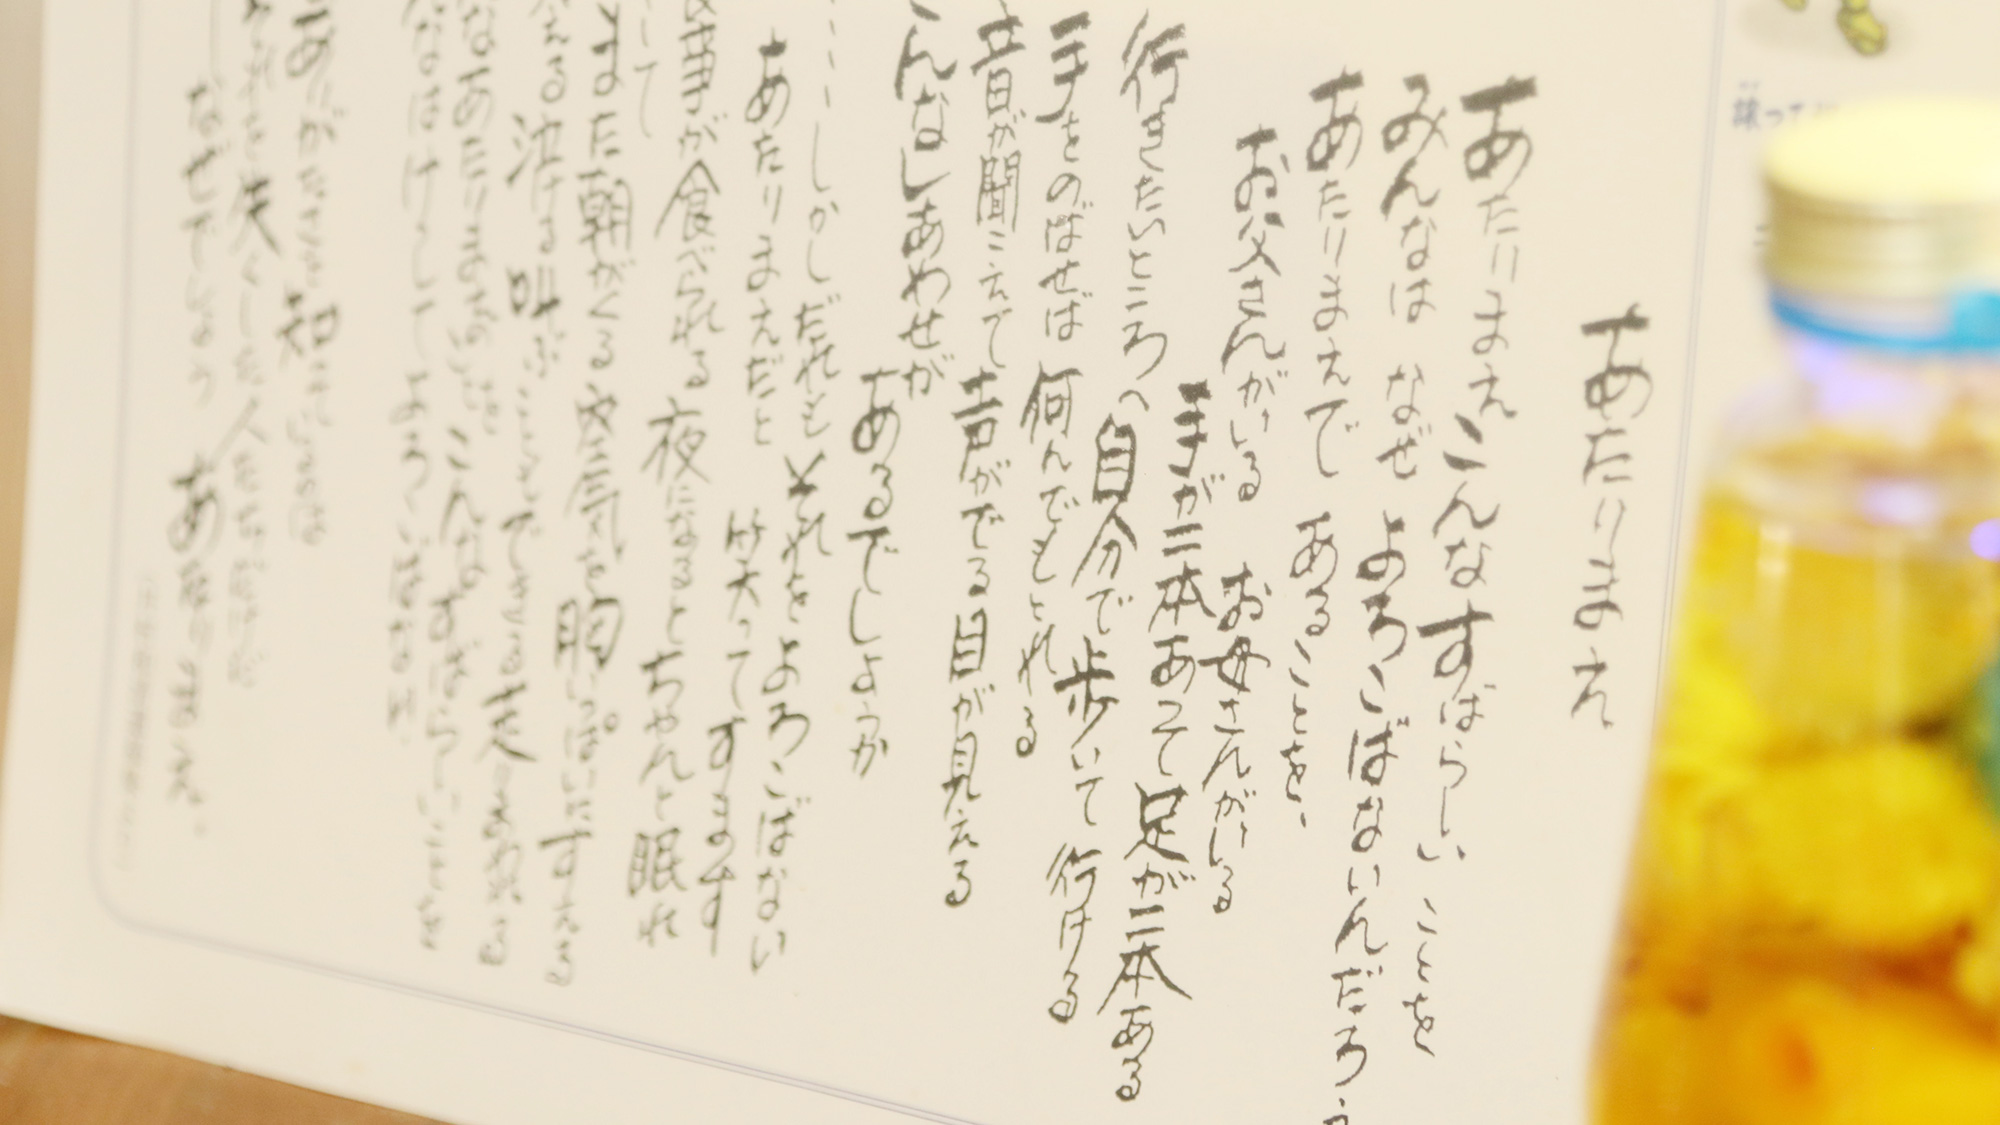 あたりまえ
あたりまえ こんなすばらしい ことを
みんなは なぜ よろこばないんだろう
あたりまえで あることを、
お父さんがいる お母さんがいる
手が二本あって 足が二本ある
行きたいところへ 自分で歩いて 行ける
手をのばせば 何んでもとれる
音が聞こえて 声がでる 目が見える
こんなしあわせが
あるでしょうか
しかしだれも それをよろこばない
あたりまえだと 笑ってすます
事が食べられる 夜になるとちゃんと眠れ
て
また朝がくる 空気を胸いっぱいにすえる
える 泣ける 叫ぶこともできる 走りまわれる
なあたりまえのこと こんなすばらしいことを
なはけっしてよろこばない
ありがたさを知っているのは
それを失くした人たちだけだ
なぜでしょう あたりまえ